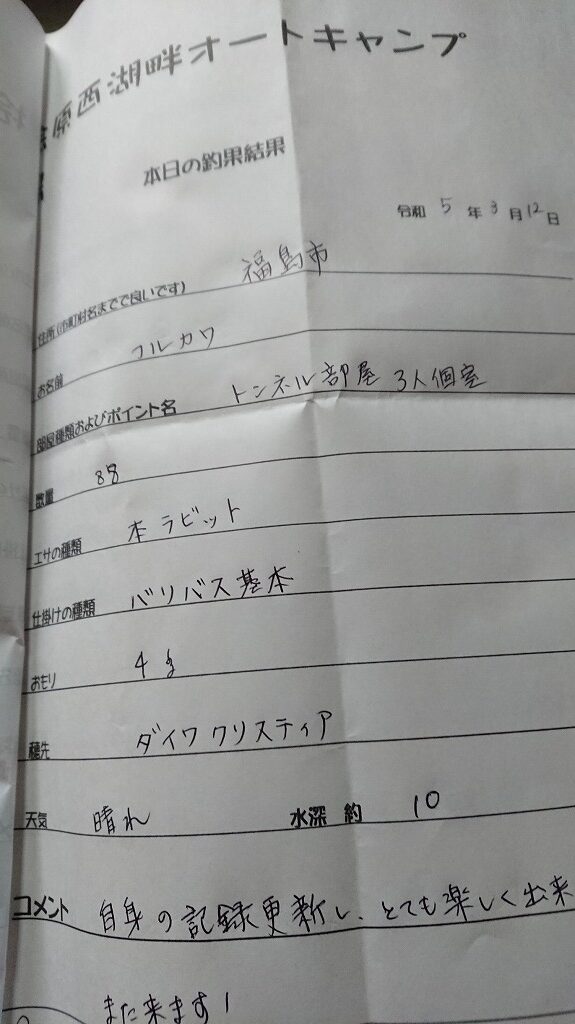 原西湖畔オートキャンプ
本日の釣果結果
令和 5 年 3 月 12 日
住所(市町村名までで良いです) 福島市
お名前 フルカワ
部屋種類およびポイント名 トンネル部屋 3人個室
数量 88
エサの種類 本ラビット
仕掛けの種類 バリバス基本
おもり 4g
穂先 ダイワクリスティア
天気 晴れ 水深 約 10
コメント 自身の記録更新し、とても楽しく出来
また来ます!